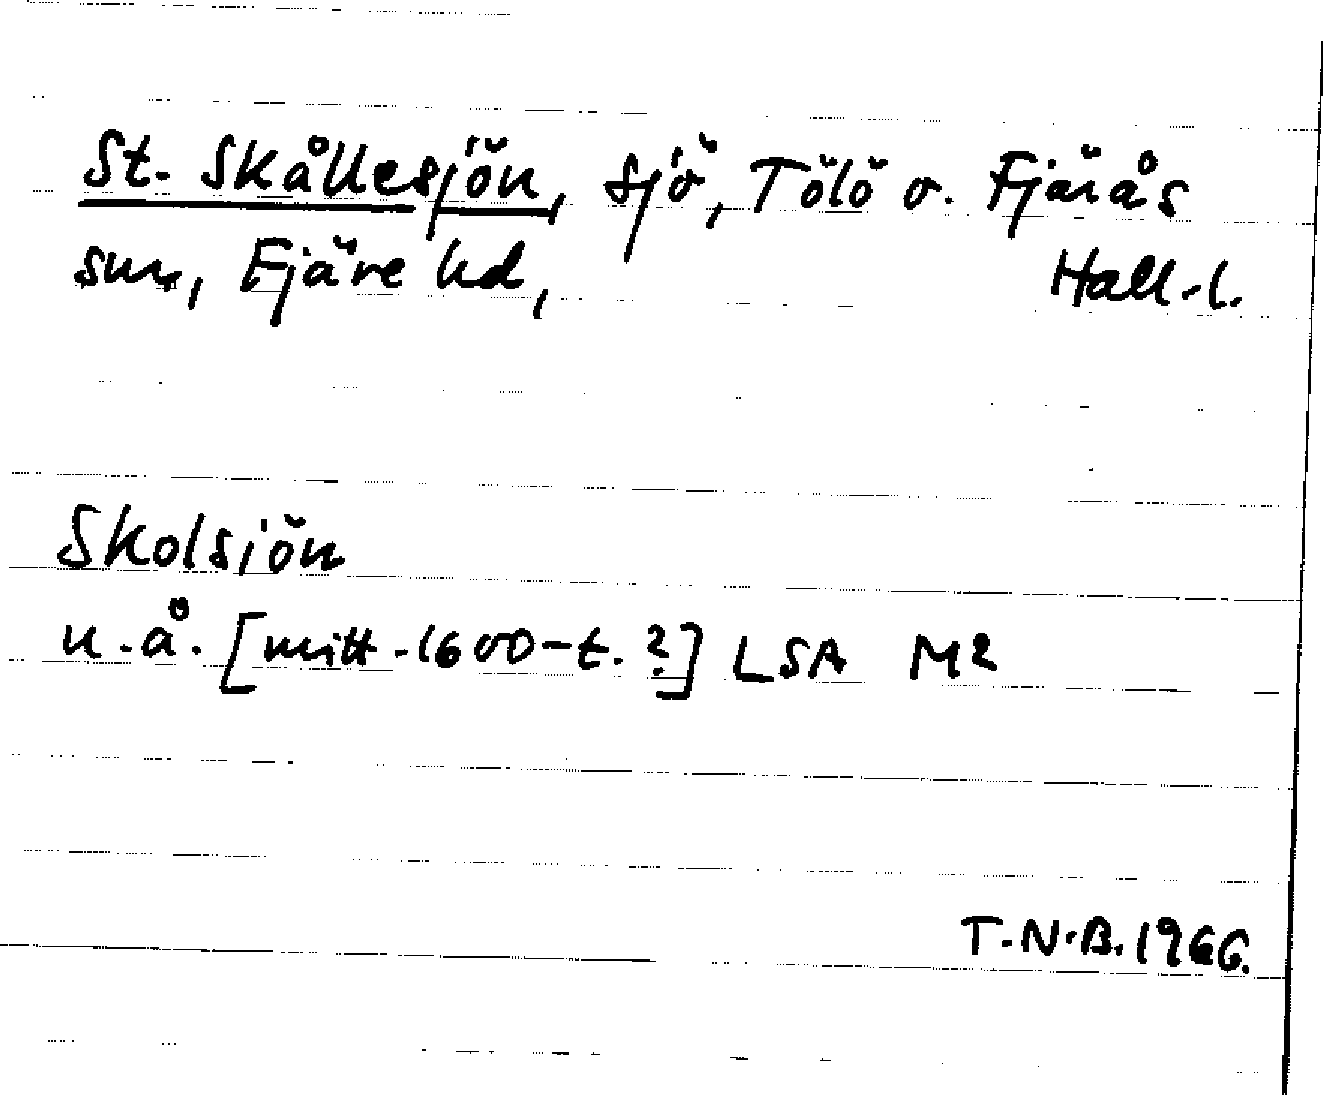 St. Skållesjön, sjö, Tölö o. Fjärås
snr, Fjäre hd, Hall.l.
Skolsiön
u.å. [mitt.1600-t.?] LSA M2
T.N.B.1966.